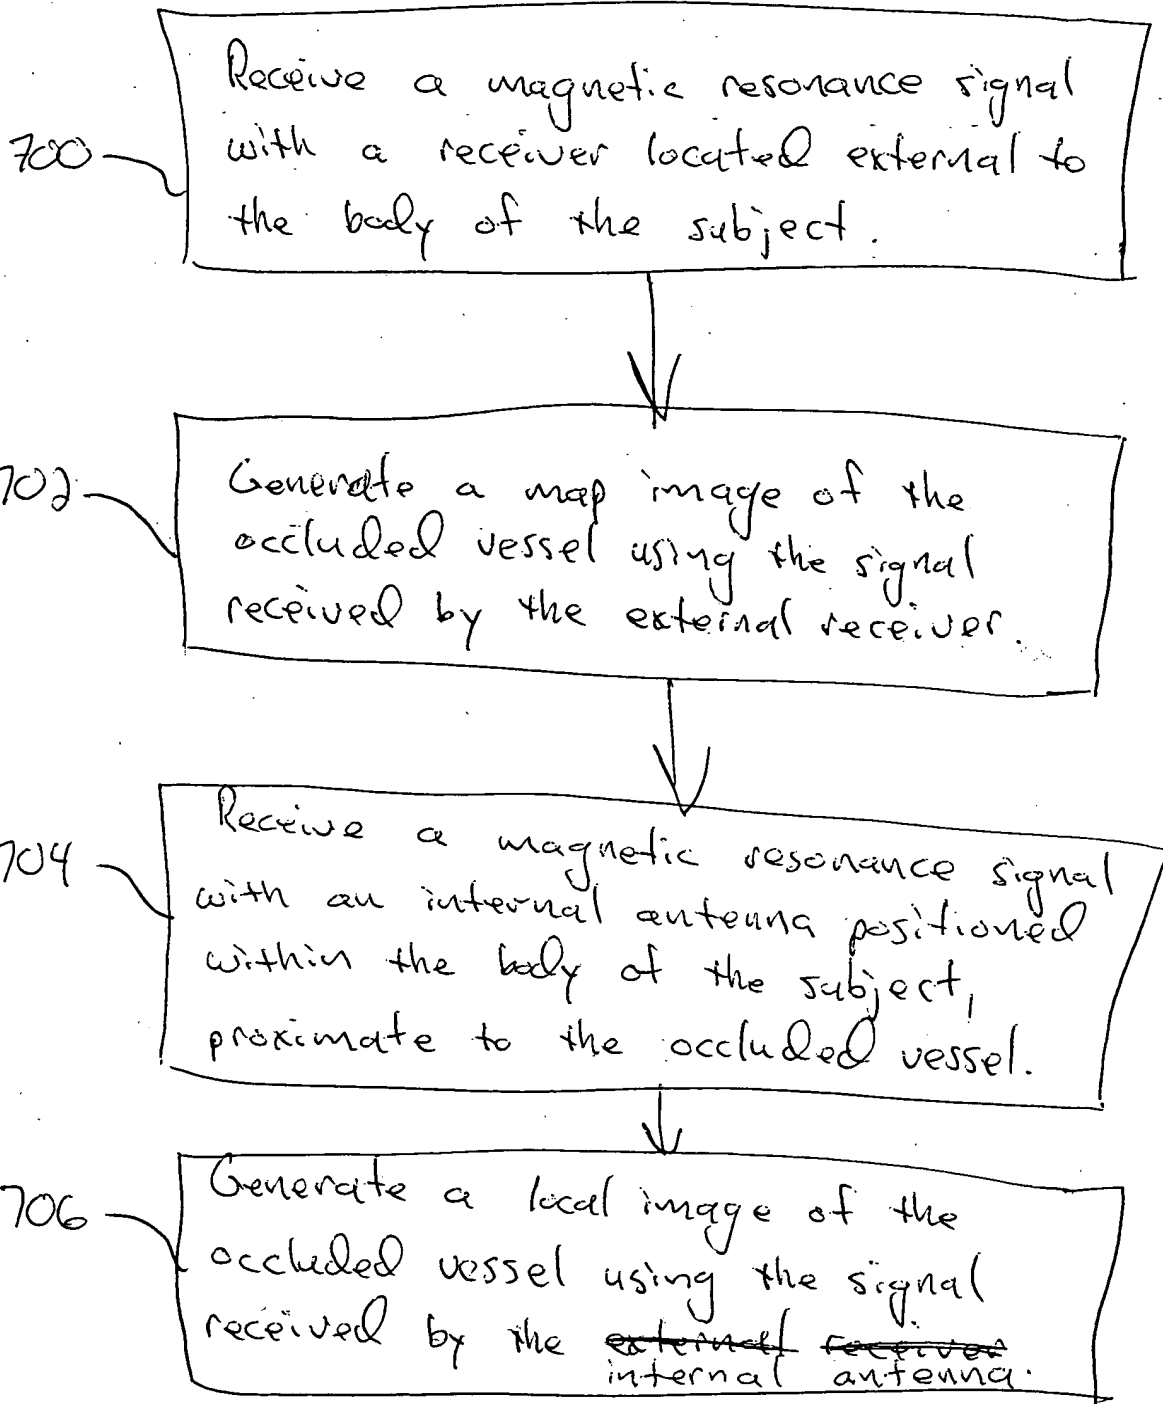 700
Receive a magnetic resonance signal
with a receiver located external to
the body of the subject.
702
Generate a map image of the
occluded vessel using the signal
received by the external receiver.
704
Receive a magnetic resonance signal
with an internal antenna positioned
within the body of the subject,
proximate to the occluded vessel.
706
Generate a local image of the
occluded vessel using the signal
received by the external receiver
internal antenna.